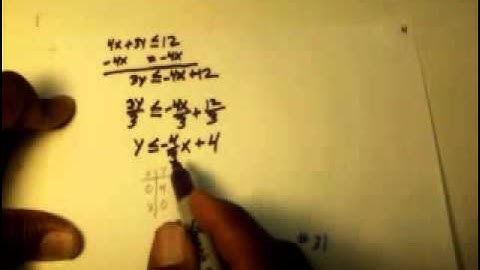 4x+3y≤12
-4x = -4x
3y≤-4x+12
3y/3 ≤ -4x/3 + 12/3
y≤-4/3x+4
x y
0 4
0
#31